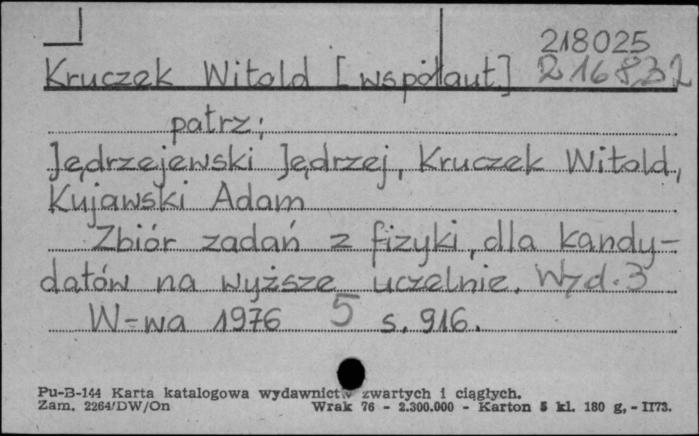 218025
Kruczek Witold [współaut.] 216832
patrz:
Jędrzejewski Jędrzej, Kruczek Witold,
Kujawski Adam
Zbiór zadań z fizyki, dla kandy-
datów na wyższe uczelnie. Wyd. 3
W-wa 1976 5 s. 916.
Pu-B-144 Karta katalogowa wydawnictw zwartych i ciągłych.
Zam. 2264/DW/On Wrak 76 - 2.300.000 - Karton 5 kl. 180 g, - II73.